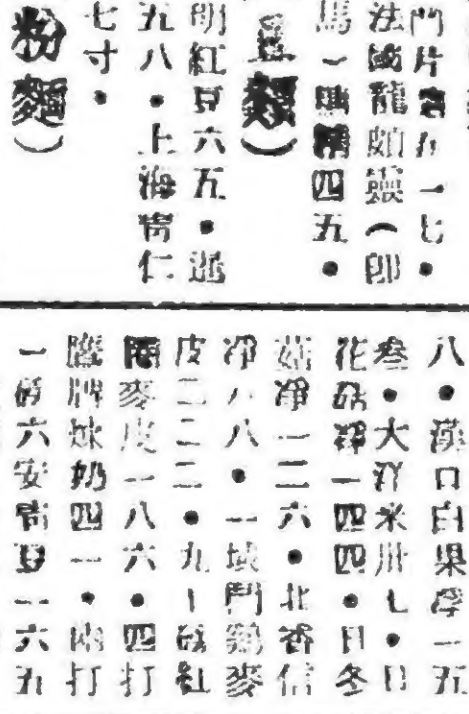 門片五一七•
法國龍靈（即
馬）精四五•
豆類）
明紅豆六五•
五八•上海靑仁
七寸•
粉麵）
八•漢口白果淨一五
叁•大洋米卅七•日
花菇淨一四四•日冬
菇淨一二六•北香信
淨八八•一城門鷄麥
皮二二二•九十磅紅
麥皮一八六•四打
鷹牌煉奶四一•兩打
一磅六安靑豆一六五